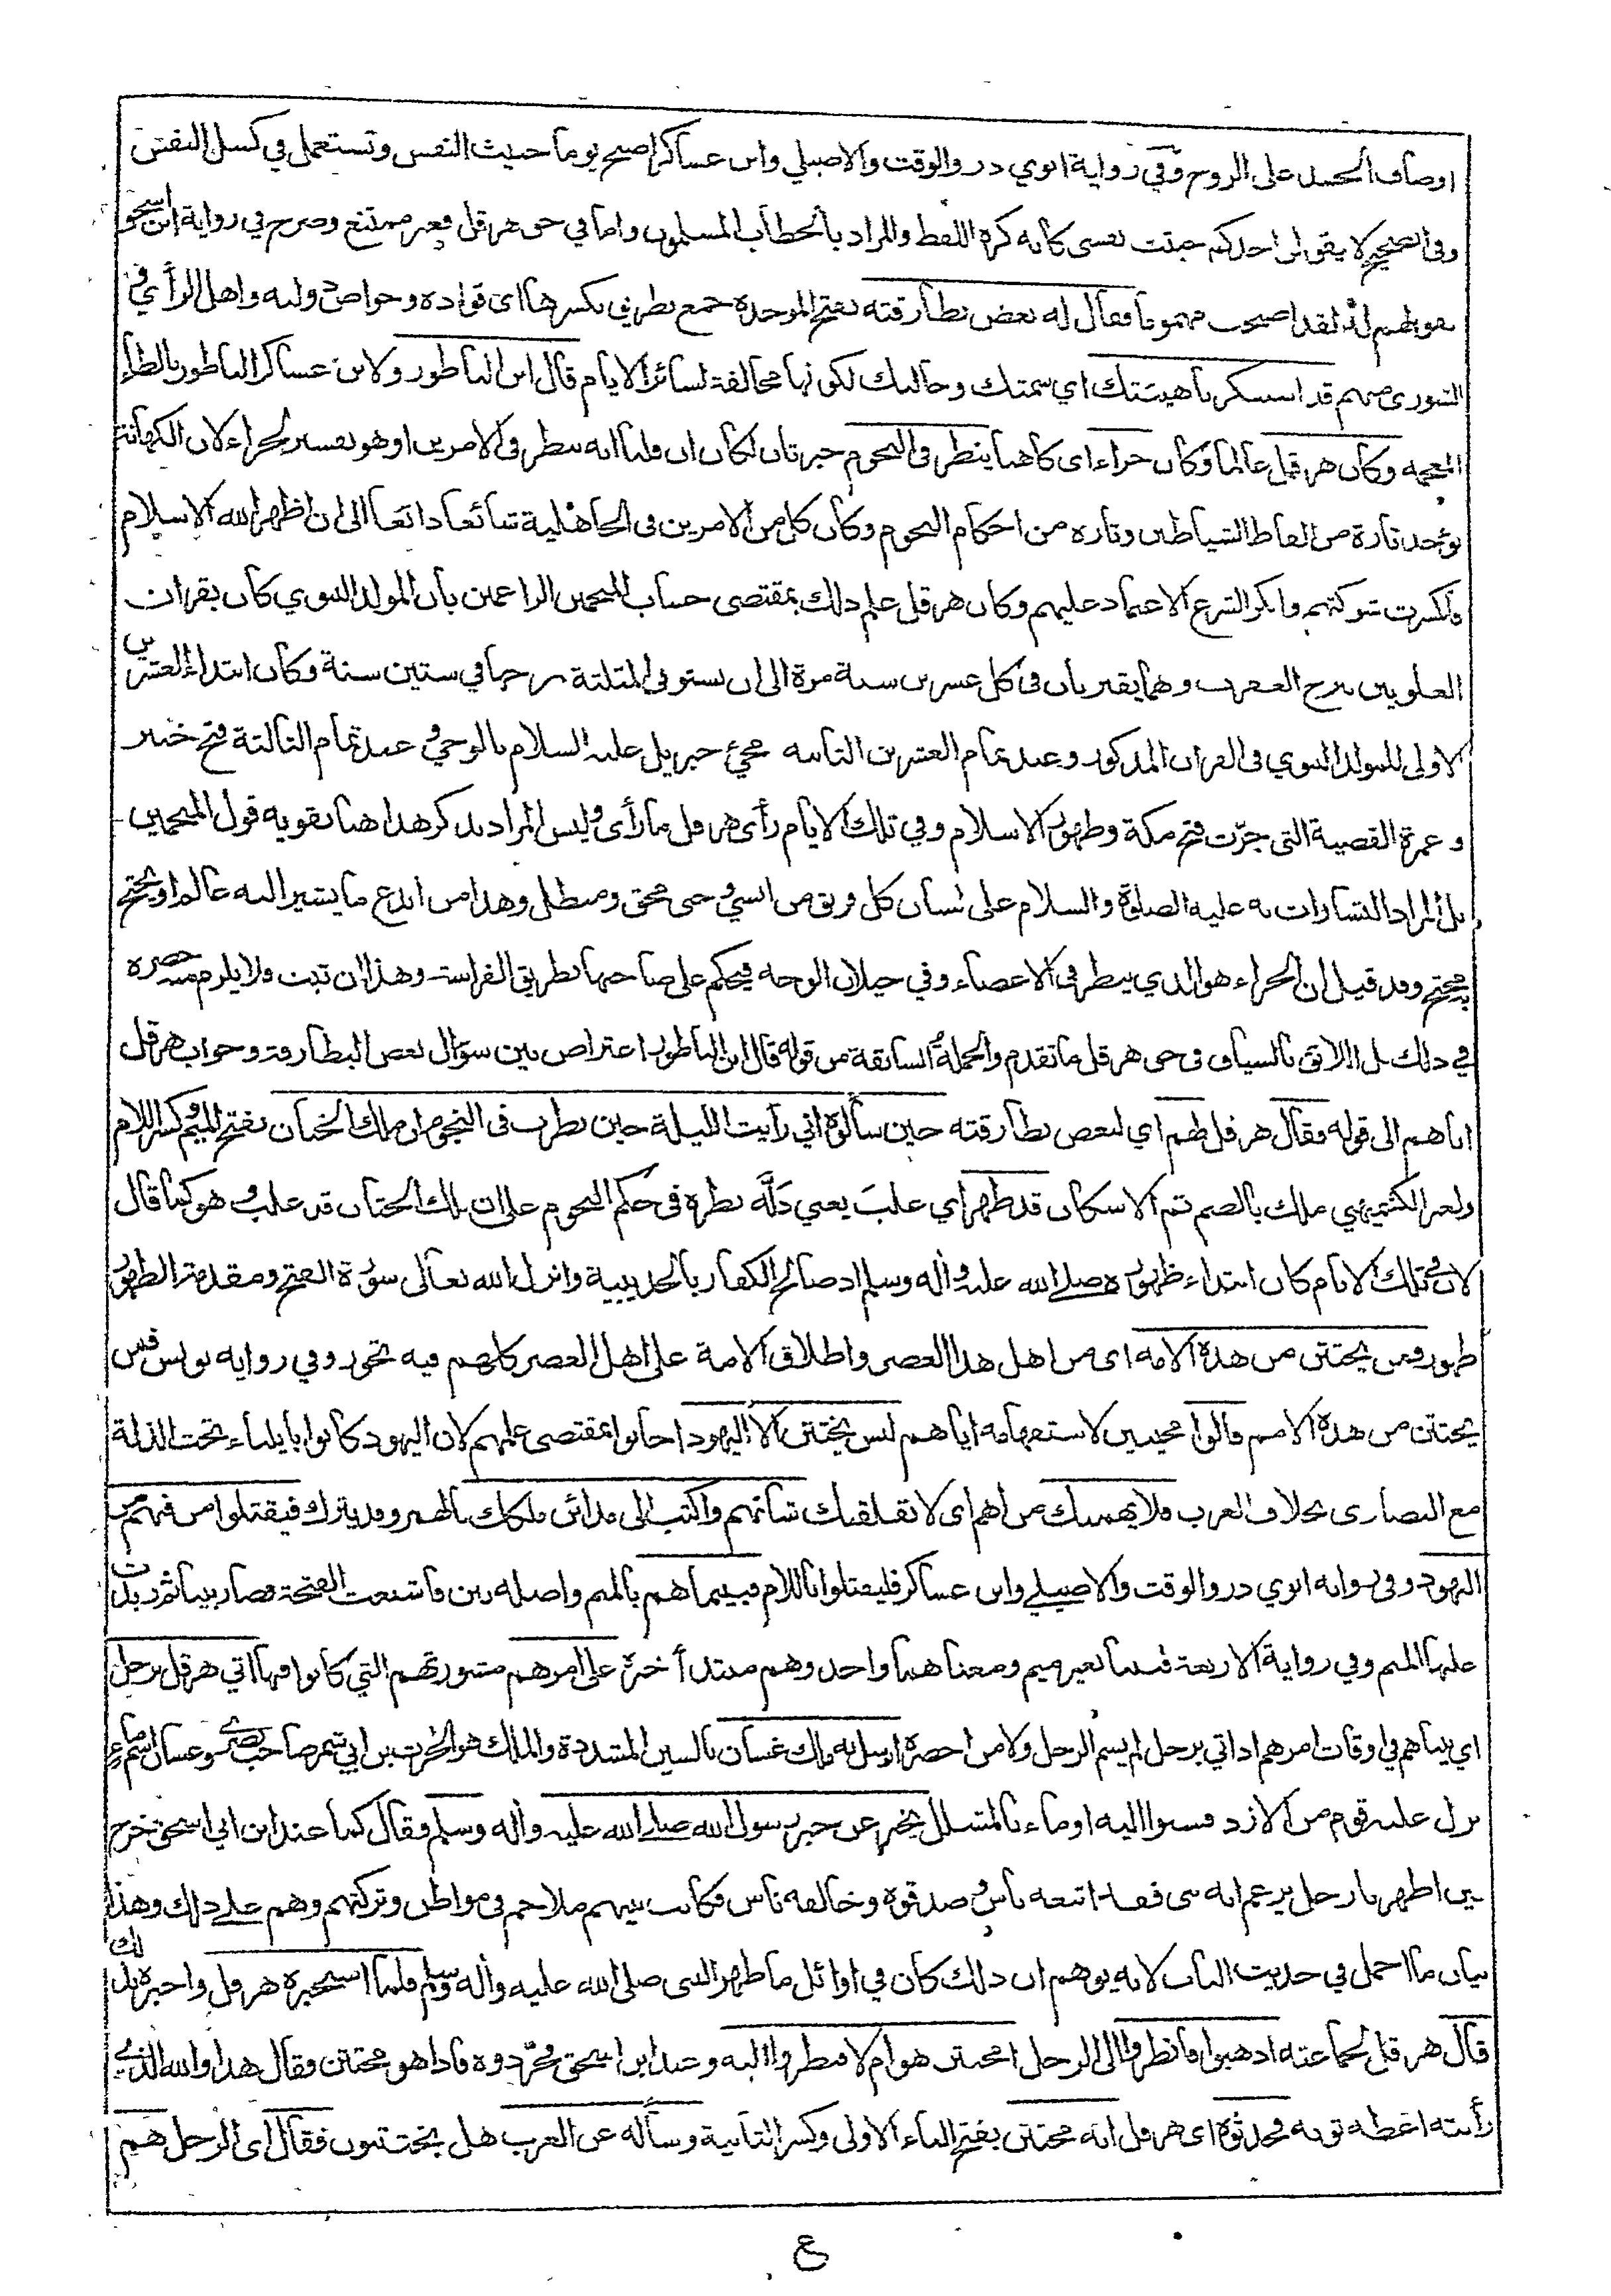 اوصاف الجسد على الروح وفي رواية ابوي ذر والوقت والاصيلي وابن عساكر اصبح يوما خبيث النفس وتستعمل في كسل النفس
وفي الصحيح لا يقولن احدكم خبثت نفسي كانه كره اللفظ والمراد بالخطاب المسلمون واما في حق هرقل فغير ممتنع وصرح في رواية ابن اسحق
بقولهم له لقد اصبحت مهموما فقال له بعض بطارقته بفتح الموحدة جمع بطريق بكسرها اي قواده وخواص دولته واهل الرأي في
الشورى منهم قد استنكرنا هيئتك اي سمتك وحالتك لكونها مخالفة لسائر الايام قال ابن الناطور ولابن عساكر الناظور بالظاء
المعجمة وكان هرقل عالما وكان حزاء اي كاهنا ينظر في النجوم خبر ثان لكان ان قلنا انه ينظر في الامرين او هو تفسير لحزاء لان الكهانة
تؤخذ تارة من الفاظ الشياطين وتارة من احكام النجوم وكان كل من الامرين في الجاهلية شائعا ذائعا الى ان اظهر الله الاسلام
فانكسرت شوكتهم وانكر الشرع الاعتماد عليهم وكان هرقل علم ذلك بمقتضى حساب المنجمين الزاعمين بان المولد النبوي كان بقران
العلويين ببرج العقرب وهما يقترنان في كل عشرين سنة مرة الى ان تستوفي المثلثة بروجها في ستين سنة وكان ابتداء العشرين
الاولى للمولد النبوي في القران المذكور وعند تمام العشرين الثانية مجيء جبريل عليه السلام بالوحي وعند تمام الثالثة فتح خيبر
وعمرة القضية التي جرّت فتح مكة وظهور الاسلام وفي تلك الايام رأى هرقل ما رأى وليس المراد بذكر هذا هنا تقوية قول المنجمين
بل المراد البشارات به عليه الصلوة والسلام على لسان كل فريق من انسي وجني محق ومبطل وهذا من ابدع ما يشير اليه عالم او يجنح
محتج وقد قيل ان الحزاء هو الذي ينظر في الاعضاء وفي خيلان الوجه فيحكم على صاحبها بطريق الفراسة وهذا ان ثبت فلا يلزم منه حصره
في ذلك بل اللائق بالسياق في حق هرقل ما تقدم والجملة السابقة من قوله قال ابن الناطور اعتراض بين سؤال بعض البطارقة وجواب هرقل
اياهم الى قوله فقال هرقل لهم اي لبعض بطارقته حين سألوه اني رأيت الليلة حين نظرت في النجوم ان ملك الختان بفتح الميم وكسر اللام
ولغير الكشميهني ملك بالضم ثم الاسكان قد ظهر اي غلب يعني دلَّه نظره في حكم النجوم على ان ملك الختان قد غلب وهو كما قال
لان في تلك الايام كان ابتداء ظهوره صلى الله عليه وأله وسلم اذ صالح الكفار بالحديبية وانزل الله تعالى سورة الفتح ومقدمة الظهور
ظهور فمن يختتن من هذه الامة اي من اهل هذا العصر واطلاق الامة على اهل العصر كلهم فيه تجوز وفي رواية يونس فمن
يختتن من هذه الامم قالوا مجيبين لاستفهامه اياهم ليس يختتن الا اليهود اجابوا بمقتضى علمهم لان اليهود كانوا بايلياء تحت الذلة
مع النصارى بخلاف العرب فلا يهمنك من اهم اي لا تقلقنك شأنهم واكتب الى مدائن ملكك بالهمز وقد يترك فيقتلوا من فيهم من
اليهود وفي رواية ابوي ذر والوقت والاصيلي وابن عساكر فليقتلوا باللام فبينما هم بالميم واصله بين فاشبعت الفتحة فصار بينا ثم زيدت
عليها الميم وفي رواية الاربعة فبينا بغير ميم ومعناهما واحد وهم مبتدأ خبره على امرهم مشورتهم التي كانوا فيها اتي هرقل برجل
اي بينا هم في اوقات امرهم اذ اتي برجل لم يسم الرجل ولا من احضره ارسل به ملك غسان بالسين المشددة والملك هو الحرث بن ابي شمر صاحب بصرى وغسان اسم ماء
نزل عليه قوم من الازد فنسبوا اليه او ماء بالمشلل يخبر عن خبر رسول الله صلى الله عليه وأله وسلم فقال كما عند ابن ابي اسحق خرج
بين اظهرنا رجل يزعم انه نبي فقد اتبعه ناس وصدقوه وخالفه ناس فكانت بينهم ملاحم في مواطن وتركتهم وهم على ذلك وهذا
بيان ما اجمل في حديث الباب لانه يوهم ان ذلك كان في اوائل ما ظهر النبي صلى الله عليه وأله وسلم فلما استخبره هرقل واخبره بذلك
قال هرقل لجماعته اذهبوا فانظروا الى الرجل امختتن هو ام لا فنظروا اليه وعند ابن اسحق فجرّدوه فاذا هو مختتن فقال هذا والله الذي
رأيته اعطه ثوبه فحدثوه اي هرقل انه مختتن بفتح التاء الاولى وكسر الثانية وسأله عن العرب هل يختتنون فقال اي الرجل هم
ع